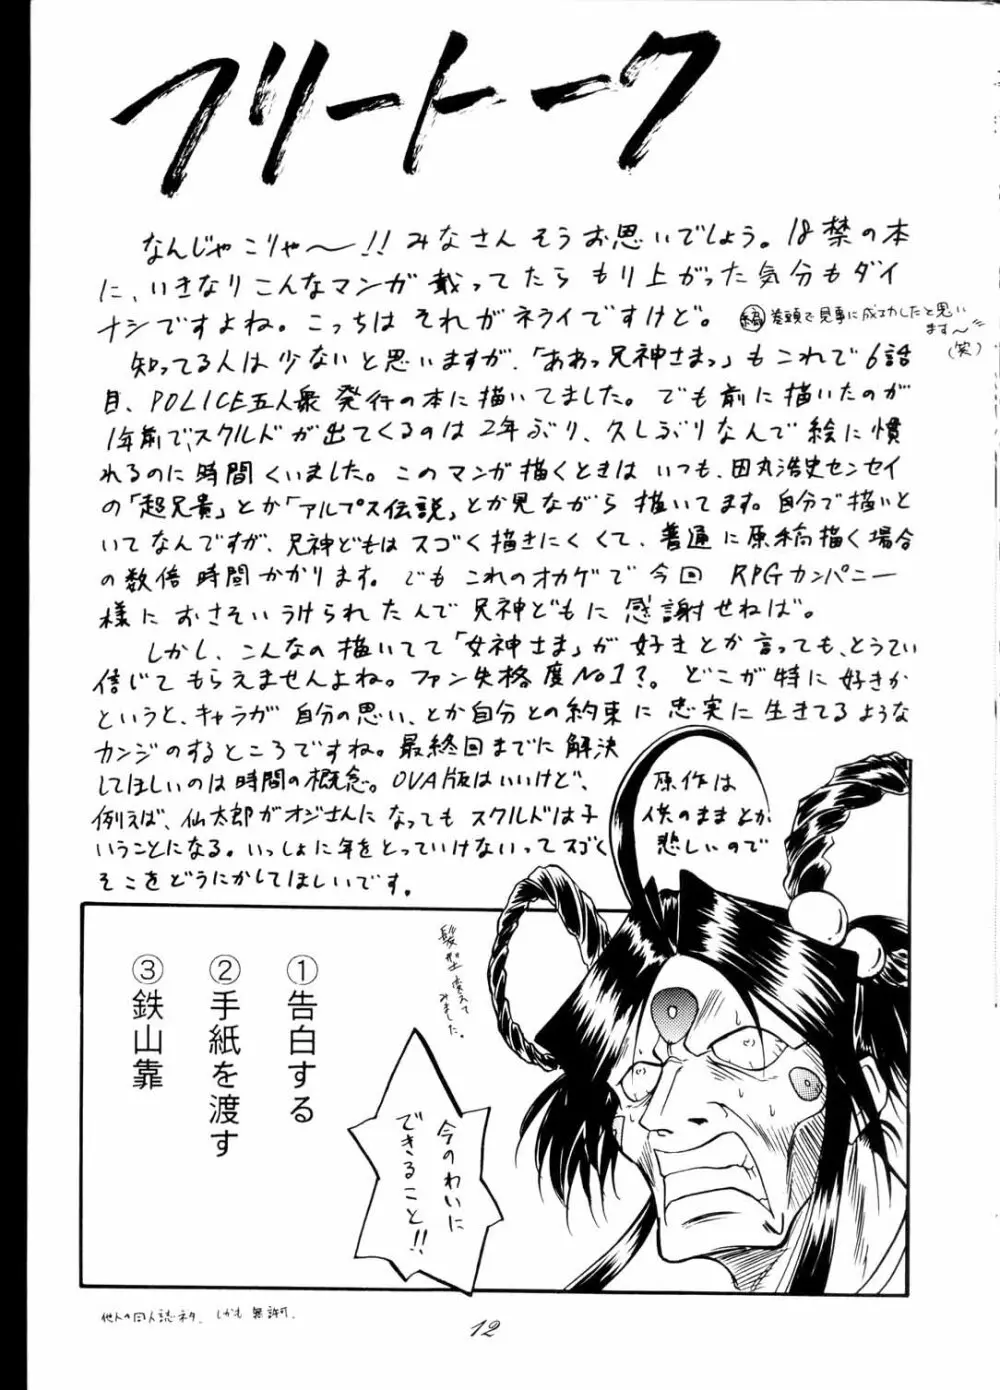 フリートーク
なんじゃこりゃ〜!!みなさんそうお思いでしょう。18禁の本
に、いきなりこんなマンガ載ってたらもり上がった気分もダイ
ナシですよね。こっちはそれがネライですけど。
巻頭で見事に成功したと思い
ます〜
(笑)
知ってる人は少ないと思いますが、「ああっ兄神さまっ」もこれで6話
目、POLICE五人衆発行の本に描いてました。でも前に描いたのが
1年前で、スクルドが出てくるのは2年ぶり、久しぶりなんで絵に慣
れるのに時間くいました。このマンガ描くときはいつも、田丸浩史センセイ
の「超兄貴」とか「アルプス伝説」とか見ながら描いてます。自分で描いと
いてなんですが、兄神どもはスゴく描きにくくて、普通に原稿描く場合
の数倍時間かかります。でもこれのオカゲで今回RPGカンパニー
様におさそいうけられたんで兄神どもに感謝せねば。
しかし、こんなの描いてて「女神さま」が好きとか言っても、とうてい
信じてもらえませんよね。ファン失格度No1?。どこが特に好きか
というと、キャラが自分の思い、とか自分との約束に忠実に生きてるような
カンジのするところですね。最終回までに解決
してほしいのは時間の概念。OVA版はいいけど、
原作は
例えば、仙太郎がオジさんになってもスクルドは子
供のままとか
いうことになる。いっしょに年をとっていけないってスゴく
悲しいので
そこをどうにかしてほしいです。
髪型変えて
みました。
①告白する
②手紙を渡す
③鉄山靠
今のわいに
できること!!
他人の同人誌ネタ。しかも無許可。
12